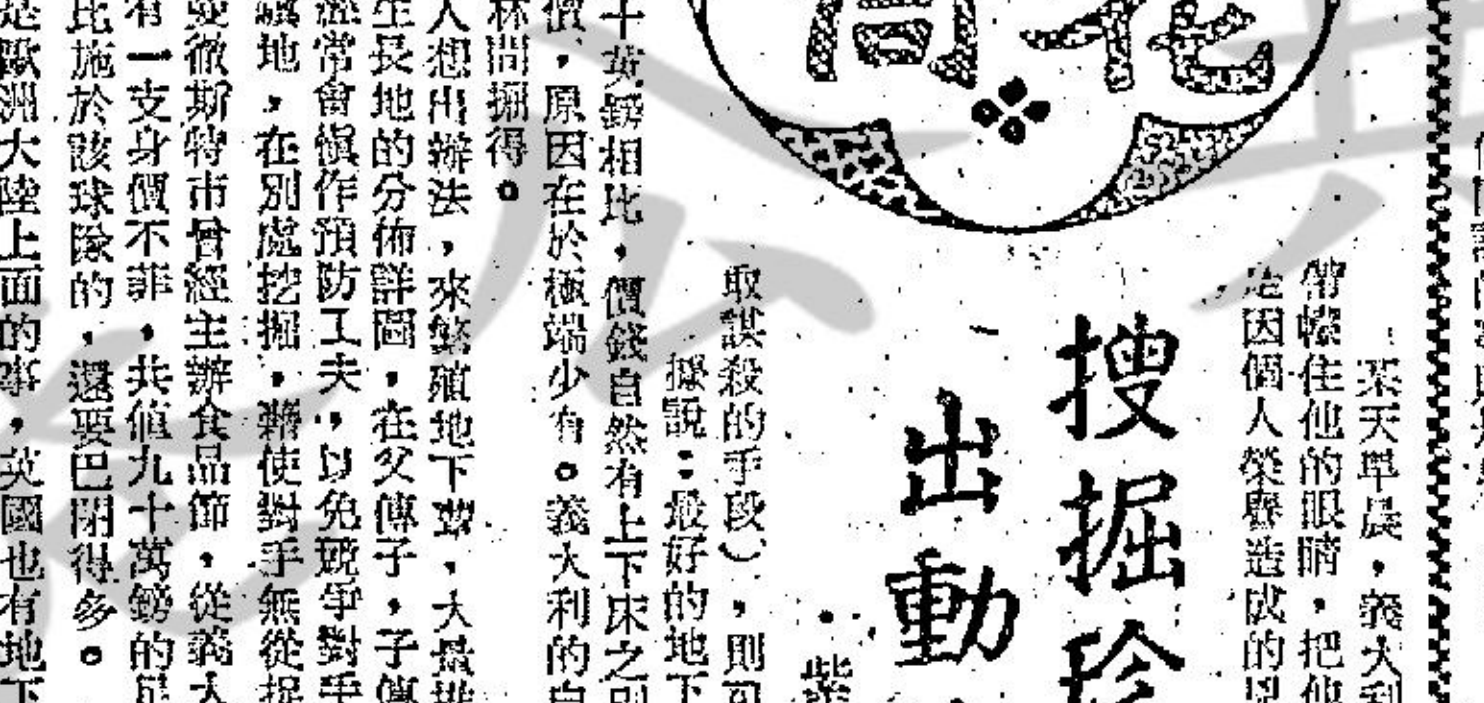 搜掘珍
出動
某天早晨，義大利
帶幪住他的眼睛，把他
是因個人榮譽造成的
取謀殺的手段），則可
據說：最好的地下
十英鎊相比，價錢自然有上下床之別
價，原因在於極端少有。義大利的白
林間掘得。
人想出辦法，來繁殖地下蕈，大量
生長地的分佈詳圖，在父傳子，子傳
常會慎作預防工夫，以免競爭對手
地，在別處挖掘，藉使對手無從捉
愛徹斯特市曾經主辦食品節，從義大
有一支身價不菲，共值九十萬鎊的足
此施於該球隊的，還要巴閉得多。
是歐洲大陸上面的事，英國也有地下